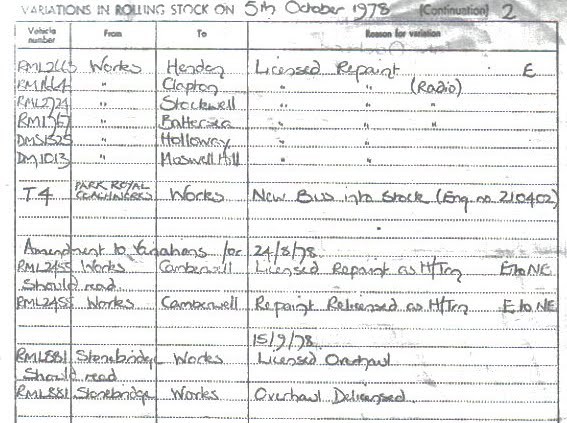 VARIATIONS IN ROLLING STOCK ON 5th October 1978 (Continuation) 2
Vehicle number From To Reason for variation
RML2663 Works Hendon Licensed Repaint E
RM1664 " Clapton " " (Radio)
RML2724 " Stockwell " "
" Battersea " "
DMS1325 " Holloway " "
DM1013 " Muswell Hill " "
T4 PARK ROYAL COACHWORKS Works New Bus into Stock (Eng no. 210402)
Amendment to Variations for 24/8/78.
RML2455 Works Camberwell Licensed Repaint as H/Trn E to NE
Should read
RML2455 Works Camberwell Repaint Relicensed as H/Trn E to NE
15/9/78.
RML881 Stonebridge Works Licensed Overhaul
Should read
RML881 Stonebridge Works Overhaul Delicensed